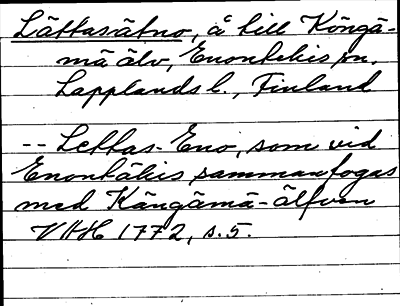 Lättasätno, å till Köngä-
mä älv, Enontekis sn.
Lapplands l., Finland
-- Lettas-Eno, som vid
Enontäkis sammanfogas
med Kängämä-älfven
VHH 1772, s. 5.